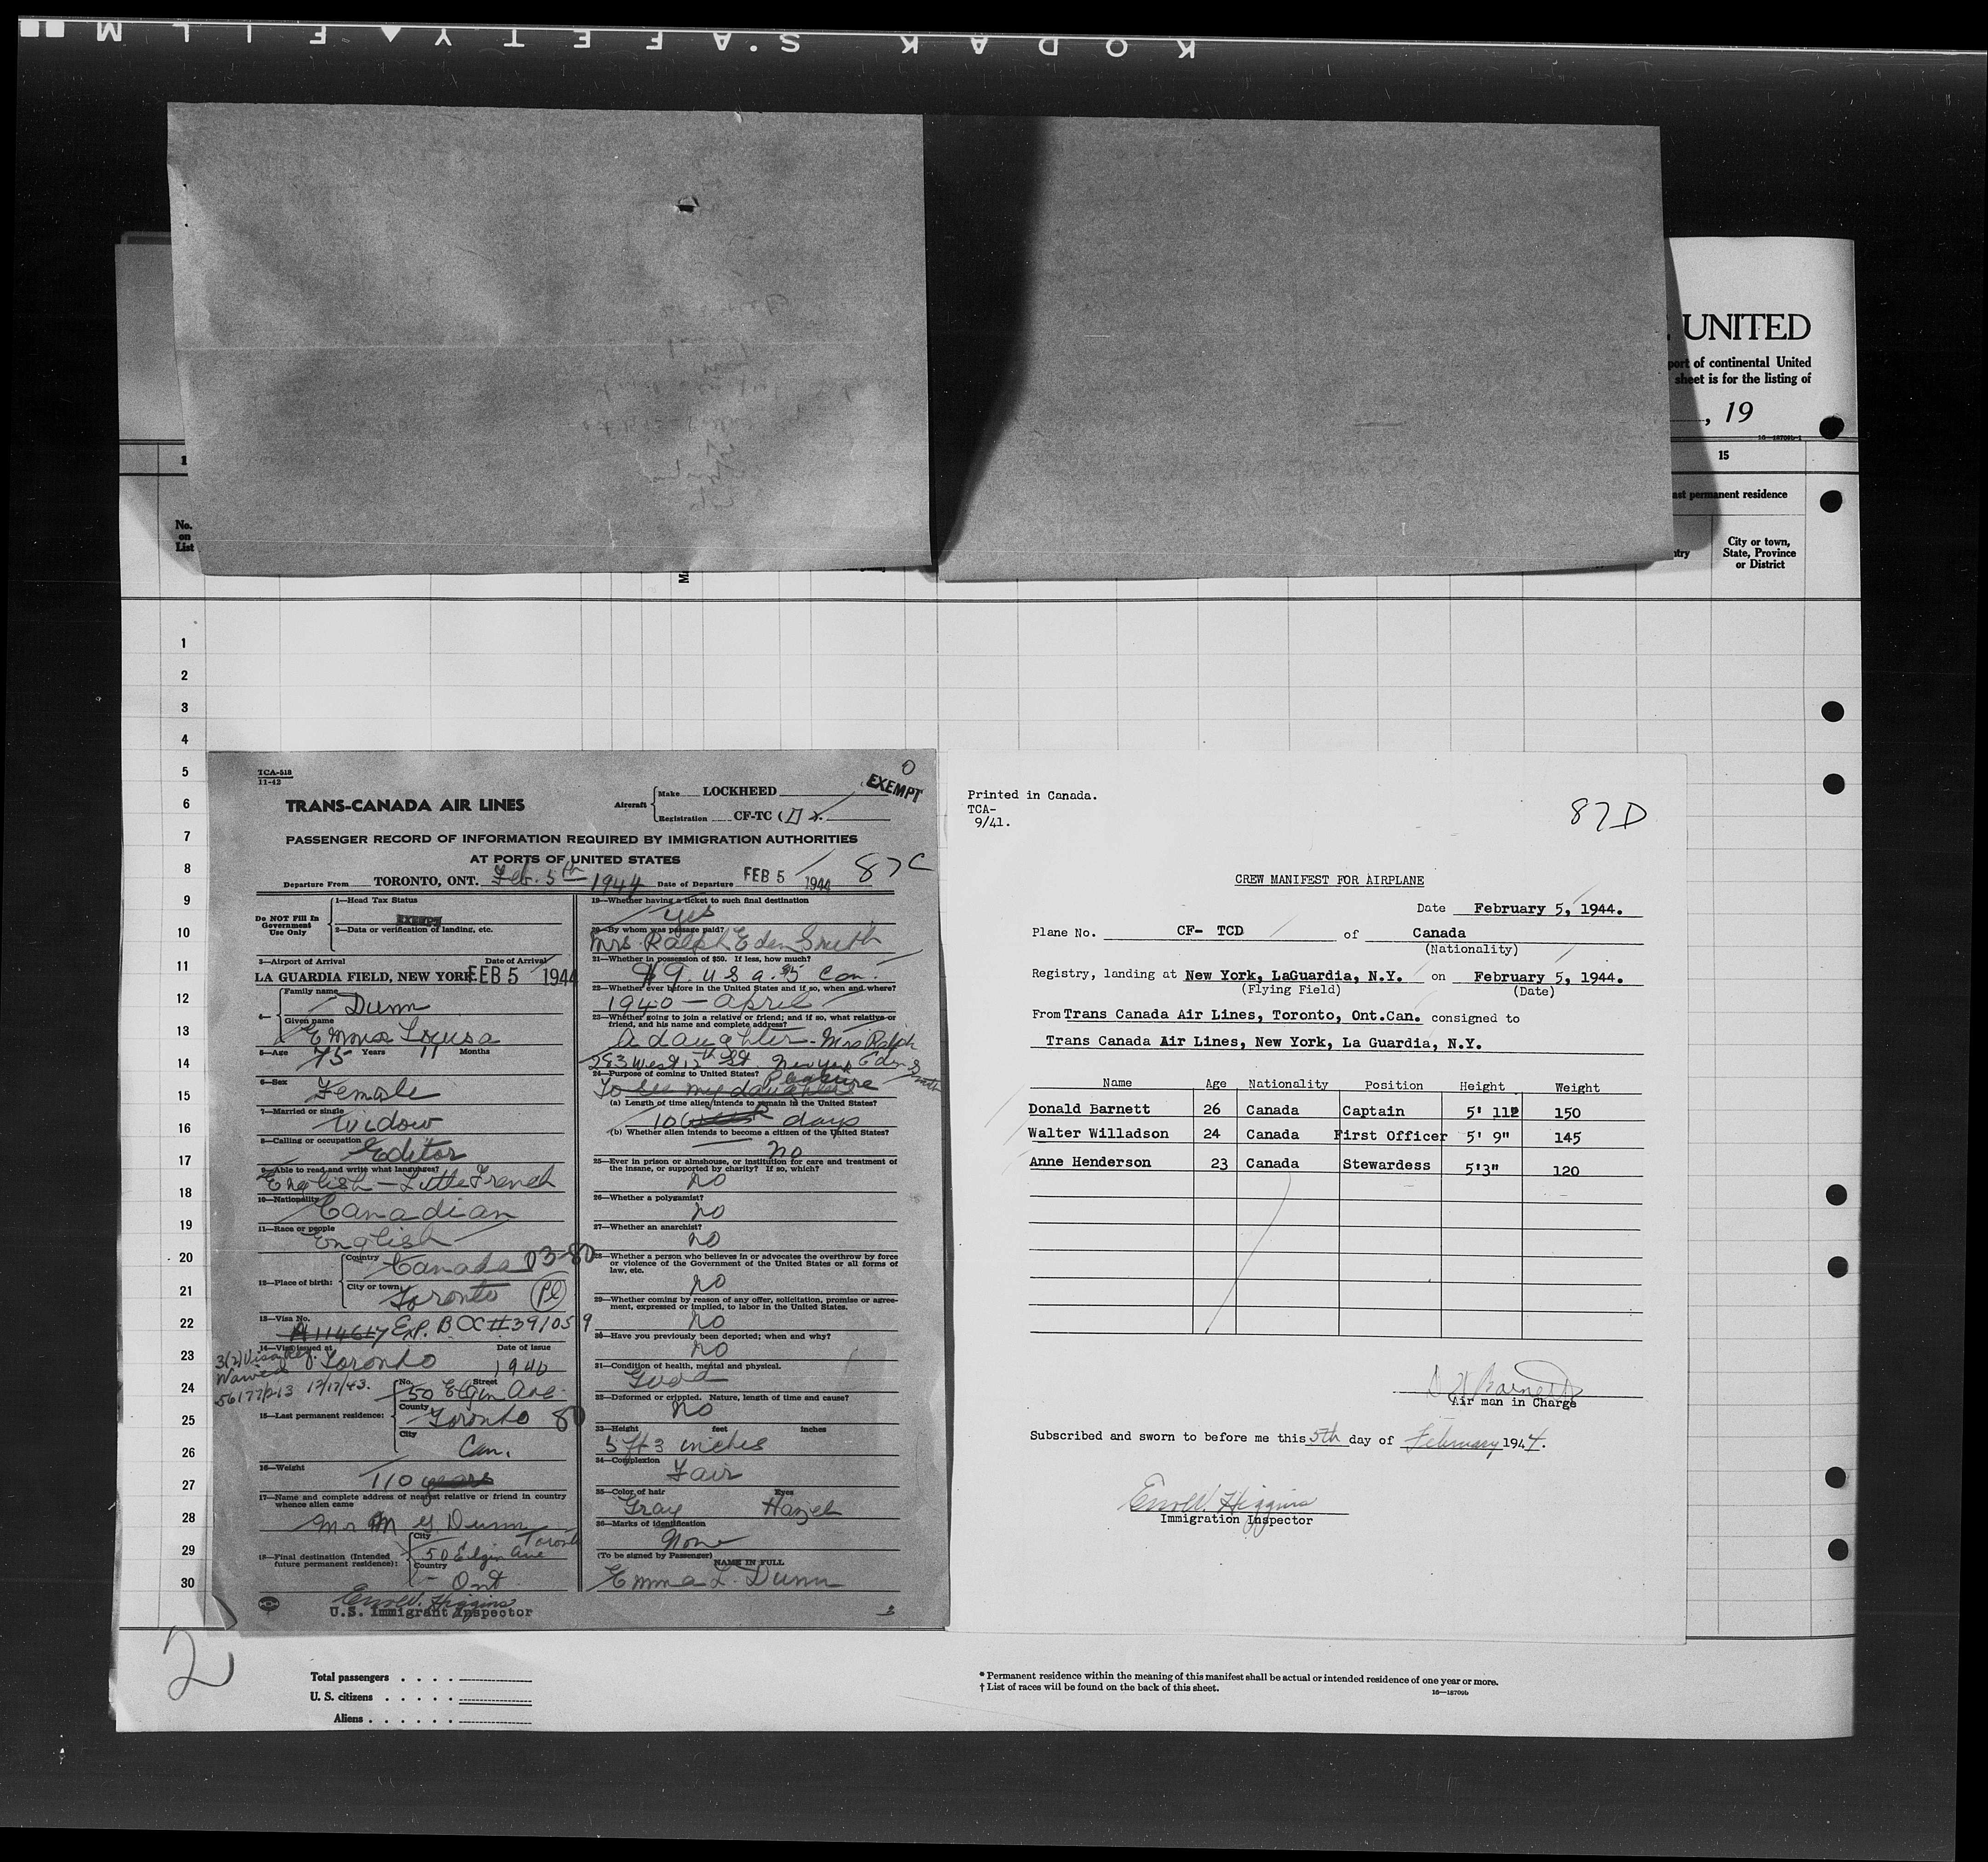 KODAK S.AFETY FILM
UNITED
port of continental United
sheet is for the listing of
, 19
16—18709b-1
1
15
ast permanent residence
No.
on
List
ntry
City or town,
State, Province
or District
1
2
3
4
5
6
7
8
9
10
11
12
13
14
15
16
17
18
19
20
21
22
23
24
25
26
27
28
29
30
TCA-518
11-42
0
EXEMPT
TRANS-CANADA AIR LINES
Aircraft
Make LOCKHEED
Registration CF-TC (D)
PASSENGER RECORD OF INFORMATION REQUIRED BY IMMIGRATION AUTHORITIES
AT PORTS OF UNITED STATES
87C
Departure From TORONTO, ONT. Feb. 5th 1944 Date of Departure FEB 5 1944
Do NOT Fill In
Government
Use Only
1—Head Tax Status
EXEMPT
2—Data or verification of landing, etc.
3—Airport of Arrival Date of Arrival
LA GUARDIA FIELD, NEW YORK. FEB 5 1944
4—
Family name
Dunn
Given name
Emma Louisa
5—Age 75 Years 11 Months
6—Sex
Female
7—Married or single
Widow
8—Calling or occupation
Editor
9—Able to read and write what languages?
English - Little French
10—Nationality
Canadian
11—Race or people
English
12—Place of birth:
Country
Canada 03-80
City or town
Toronto
13—Visa No.
A114617 Exp. B OC #391059
14—Visa issued at Date of issue
Toronto 1940
3(2) Visa Req.
Waived
56177/213 12/17/43.
15—Last permanent residence:
No. Street
50 Elgin Ave.
County
Toronto 80
City
Can.
16—Weight
110 years
17—Name and complete address of nearest relative or friend in country
whence alien came
Mr M G Dunn
18—Final destination (Intended
future permanent residence):
City Toronto
50 Elgin Ave
Country
Ont
Errol V. Higgins
U.S. Immigrant Inspector
19—Whether having a ticket to such final destination
yes
20—By whom was passage paid?
Mrs. Ralph Eden Smith
21—Whether in possession of $50. If less, how much?
$9. U S a. 95 Can.
22—Whether ever before in the United States and if so, when and where?
1940 - April
23—Whether going to join a relative or friend; and if so, what relative or
friend, and his name and complete address?
A daughter - Mrs Ralph
283 West 12th St. New York Eden Smith
24—Purpose of coming to United States? Pleasure
To see my daughter
(a) Length of time alien intends to remain in the United States?
10 days
(b) Whether alien intends to become a citizen of the United States?
no
25—Ever in prison or almshouse, or institution for care and treatment of
the insane, or supported by charity? If so, which?
no
26—Whether a polygamist?
no
27—Whether an anarchist?
no
28—Whether a person who believes in or advocates the overthrow by force
or violence of the Government of the United States or all forms of
law, etc.
no
29—Whether coming by reason of any offer, solicitation, promise or agree-
ment, expressed or implied, to labor in the United States.
no
30—Have you previously been deported; when and why?
no
31—Condition of health, mental and physical.
Good
32—Deformed or crippled. Nature, length of time and cause?
no
33—Height feet inches
5 ft 3 inches
34—Complexion
Fair
35—Color of hair Eyes
Gray Hazel
36—Marks of identification
None
(To be signed by Passenger) NAME IN FULL
Emma L. Dunn
3
Printed in Canada.
TCA-
9/41.
87D
CREW MANIFEST FOR AIRPLANE
Date February 5, 1944.
Plane No. CF- TCD of Canada
(Nationality)
Registry, landing at New York, LaGuardia, N.Y. on February 5, 1944.
(Flying Field) (Date)
From Trans Canada Air Lines, Toronto, Ont.Can. consigned to
Trans Canada Air Lines, New York, La Guardia, N.Y.
Name Age Nationality Position Height Weight
Donald Barnett 26 Canada Captain 5' 11" 150
Walter Willadson 24 Canada First Officer 5' 9" 145
Anne Henderson 23 Canada Stewardess 5'3" 120
D H Barnett
Air man in Charge
Subscribed and sworn to before me this 5th day of February 1944.
Errol V. Higgins
Immigration Inspector
2
Total passengers . . . .
U. S. citizens . . . . .
Aliens . . . . . .
* Permanent residence within the meaning of this manifest shall be actual or intended residence of one year or more.
† List of races will be found on the back of this sheet.
16—18709b